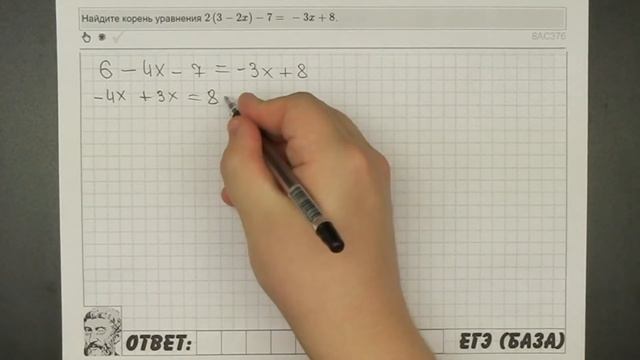 Найдите корень уравнения 2(3 − 2x) − 7 = − 3x + 8.
8AC376
6 − 4x − 7 = −3x + 8
−4x + 3x = 8
ОТВЕТ:
ЕГЭ (БАЗА)